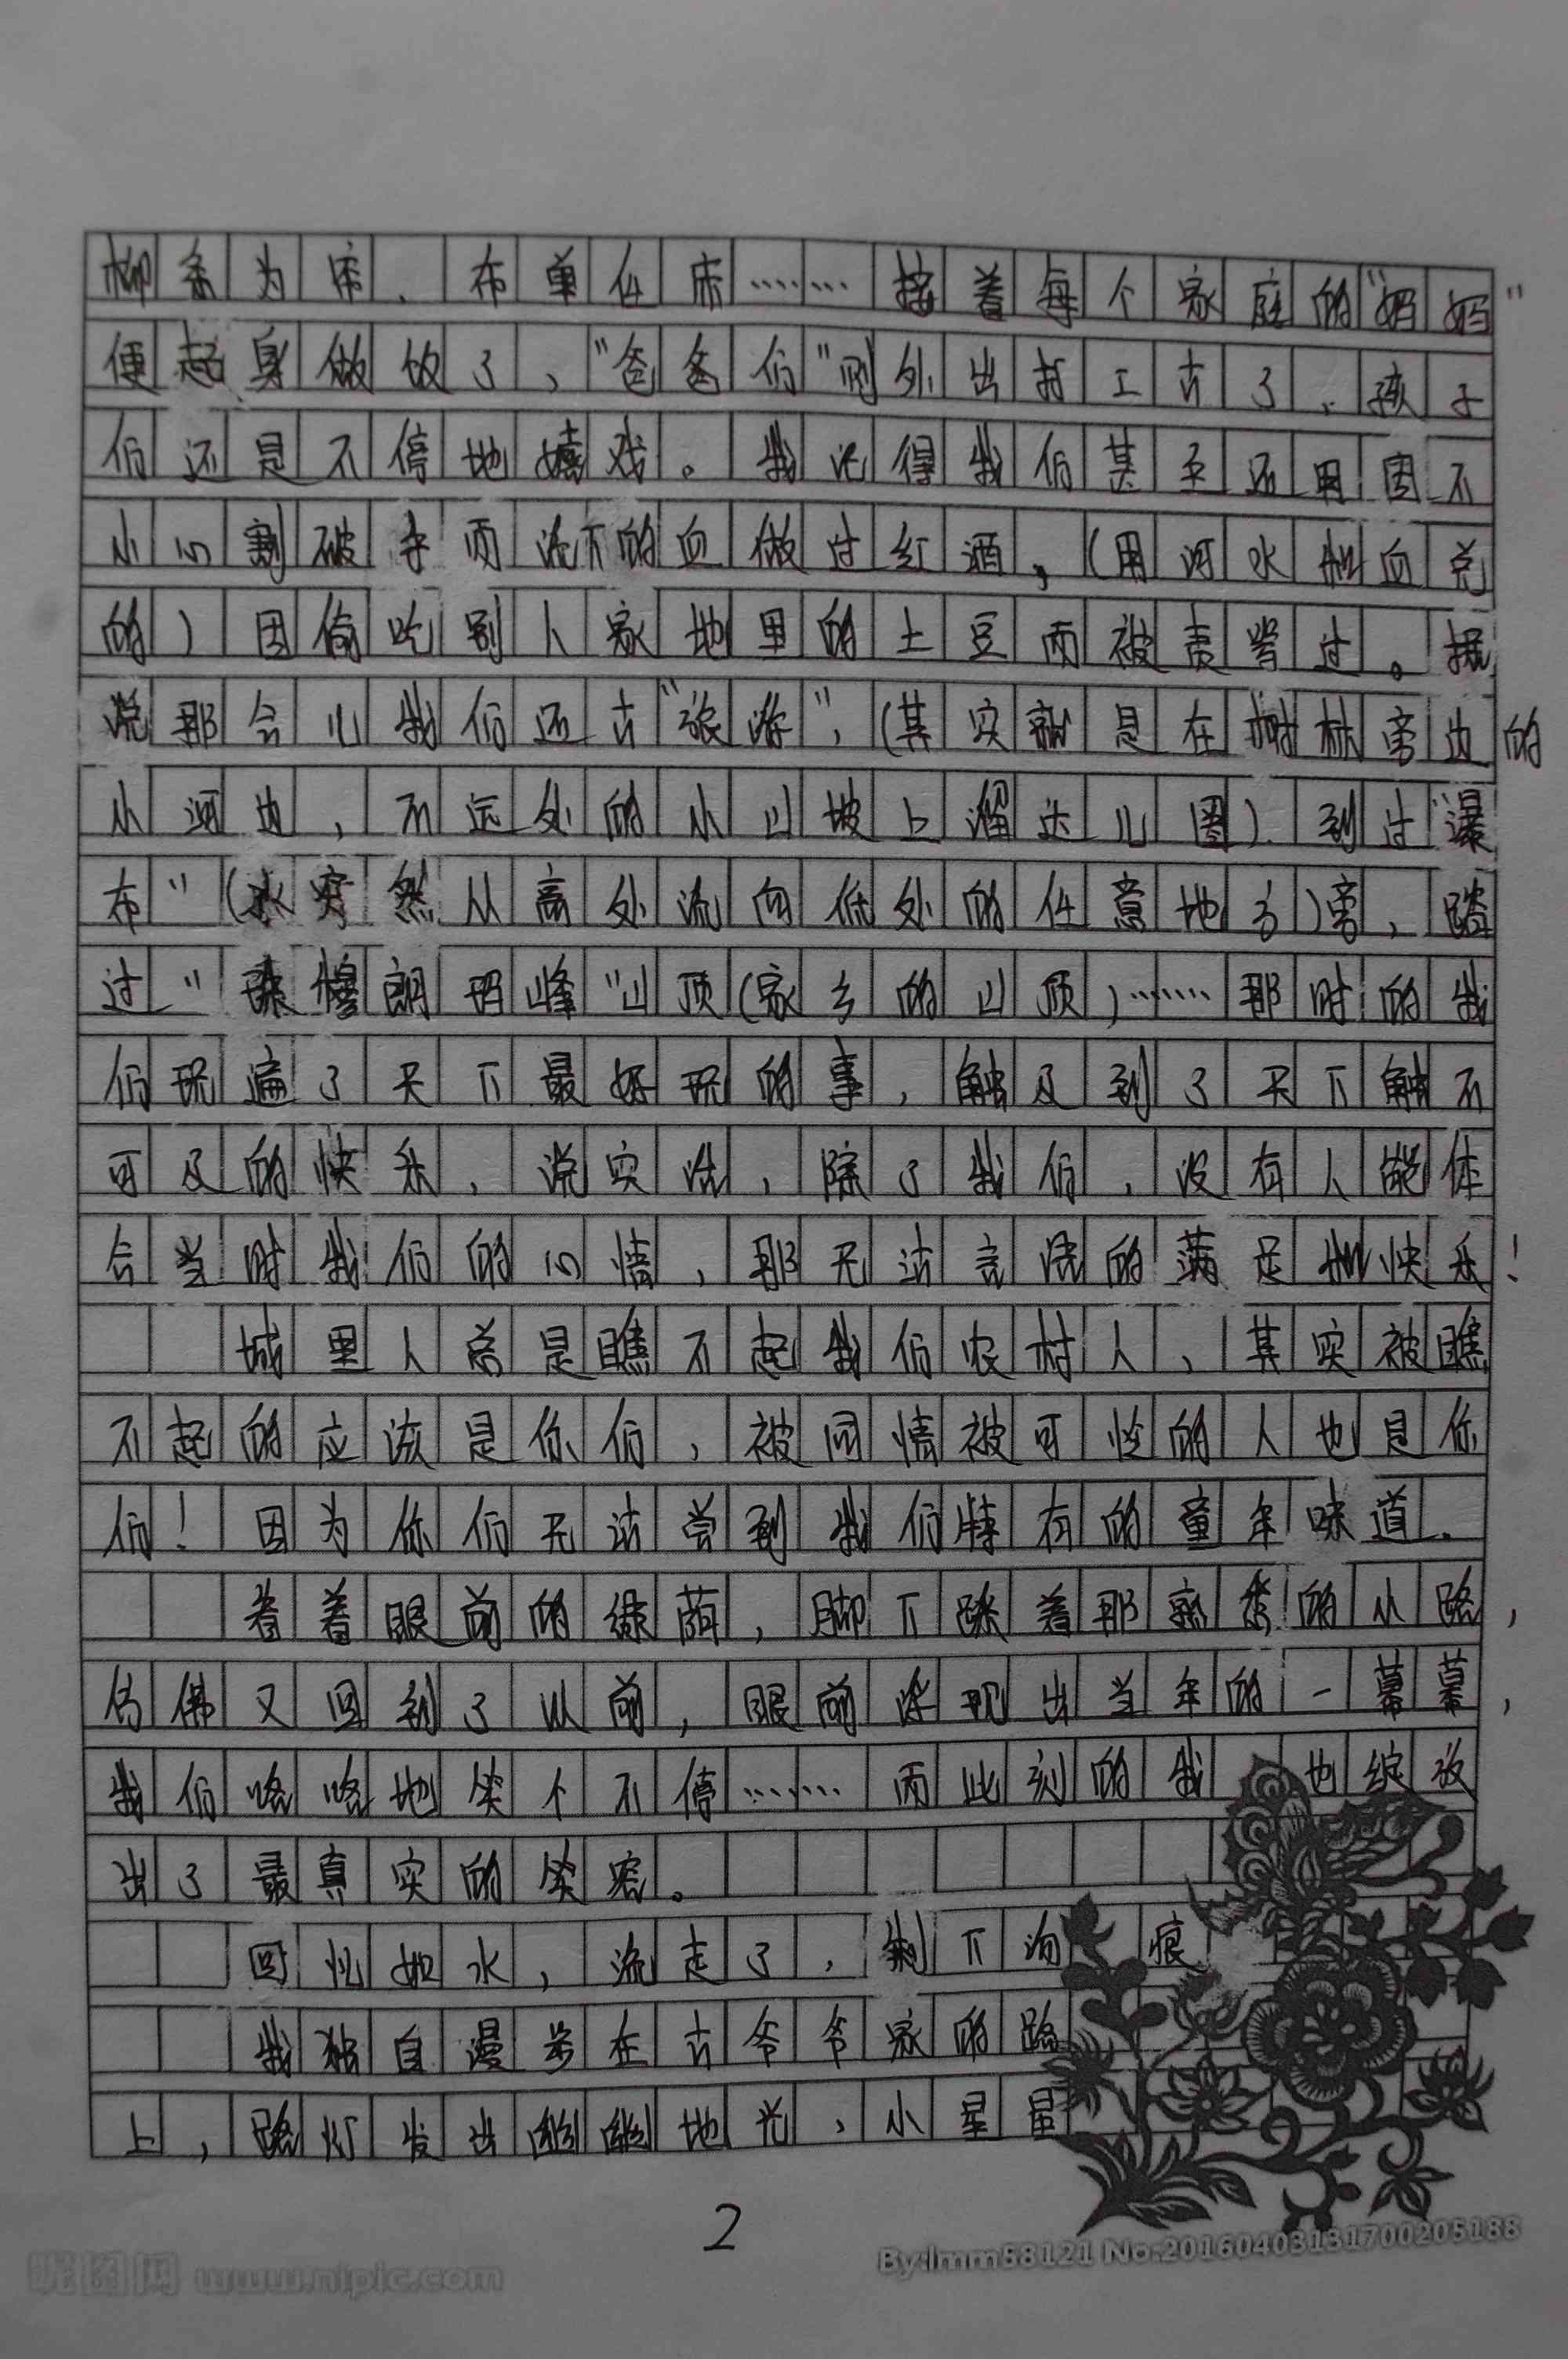 柳条为帘,布单作床……接着每个家庭的"妈妈"
便起身做饭了,"爸爸们"则外出打工去了,孩子
们还是不停地嬉戏。我记得我们甚至还用因不
小心割破手而流下的血做过红酒,(用河水和血兑
的)因偷吃别人家地里的土豆而被责骂过。据
说那会儿我们还去"旅游",(其实就是在树林旁边的
小河边,不远处的小山坡上溜达几圈).到过"瀑
布"(水突然从高处流向低处的任意地方)旁,踏
过"珠穆朗玛峰"山顶(家乡的山顶)……那时的我
们玩遍了天下最好玩的事,触及到了天下触不
可及的快乐,说实话,除了我们,没有人能体
会当时我们的心情,那无法言傥的满足和快乐!
城里人总是瞧不起我们农村人,其实被瞧
不起的应该是你们,被同情被可怜的人也是你
们!因为你们无法尝到我们特有的童年味道.
看着眼前的绿荫,脚下踩着那熟悉的小路,
仿佛又回到了以前,眼前浮现出当年的一幕幕,
我们咯咯地笑个不停……而此刻的我 也绽放
出了最真实的笑容。
回忆如水,流走了,剩下泪痕
我独自漫步在去爷爷家的路
上,路灯发出幽幽地光,小星星
2
昵图网 www.nipic.com
By:lmm58121 No.20160403131700205188